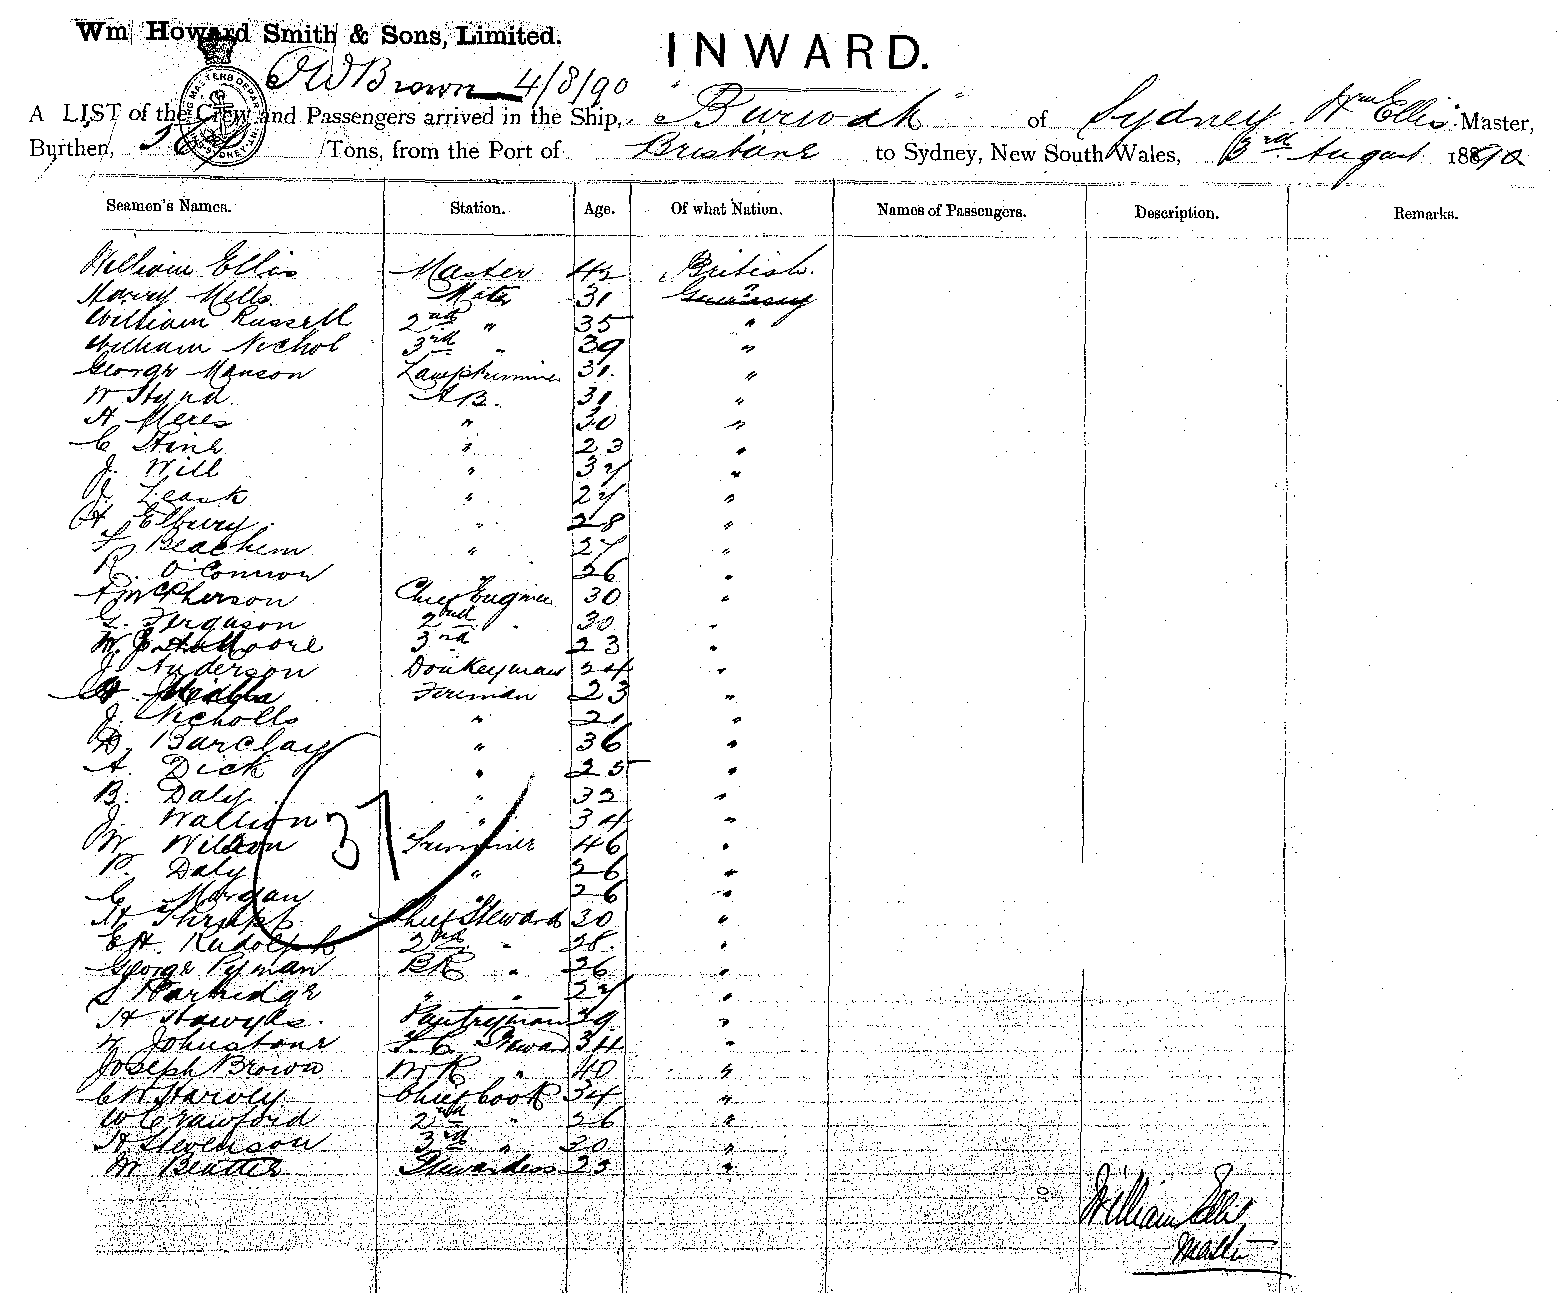 Wm Howard Smith & Sons, Limited.
INWARD.
JW Brown 4/8/90
A LIST of the Crew and Passengers arrived in the Ship, "Burwah" of Sydney Wm Ellis Master,
Burthen, Tons, from the Port of Brisbane to Sydney, New South Wales, 3rd August 1890
Seamen's Names. Station. Age. Of what Nation. Names of Passengers. Description. Remarks.
William Ellis Master 42 British.
Harry Mills Mate 31 "
William Russell 2nd " 35 "
William Nichol 3rd " 39 "
George Manson Lamptrimmer 31 "
W A.B. 31 "
H Meres " 30 "
C Hine " 23 "
J. Will " 37 "
J. Leask " 27 "
H Elbury " 28 "
F Beachem " 27 "
R. O'Connor 26 "
A McPherson Chief Engineer 30 "
G. Ferguson 2nd " 30 "
W. Moore 3rd 23 "
J Anderson Donkeyman 24 "
Fireman 23 "
J. Nicholls " 21 "
D. Barclay " 36 "
A. Dick " 25 "
B. Daly " 32 "
J. " 34 "
W Wilson Trimmer 46 "
P. Daly " 26 "
G Morgan " 26 "
37
H Chief Steward 30 "
E H. Rudolph 2nd " 28 "
George Pyman BR " 26 "
S Hartridge " " 27 "
H Pantryman 39 "
W Johnstone F.C. Steward 34 "
Joseph Brown M R " 40 "
C W Harvey Chief Cook 34 "
W Crawford 2nd " 26 "
H Stevenson 3rd " 20 "
M Stewardess 23 "
William Ellis
Master